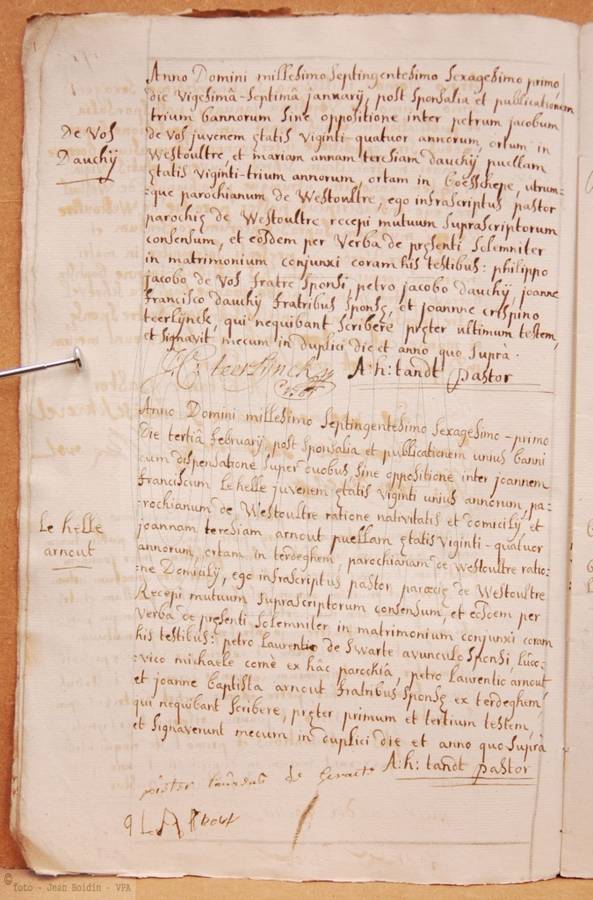 Anno Domini millesimo Septingentesimo Sexagesimo primo
die Vigesimâ-Septimâ januarij, post Sponsalia et publicationem
trium bannorum Sine oppositione inter petrum jacobum
de vos juvenem ætatis viginti-quatuor annorum, ortum in
Westoultre, et mariam annam teresiam dauchij puellam
ætatis viginti-trium annorum, ortam in boesschepe, utrum=
=que parochianum de Westoultre, ego infrascriptus pastor
parochiæ de Westoultre recepi mutuum suprascriptorum
consensum, et eosdem per Verba de præsenti Solemniter
in matrimonium conjunxi coram his testibus: philippo
jacobo de vos fratre Sponsi, petro jacobo dauchij, joanne
francisco dauchij fratribus Sponsæ, et joanne crispino
teerlynck, qui nequibant Scribere præter ultimum testem,
et Signavit mecum in duplici die et anno quo Supra.
De Vos
Dauchij
teerlinck
A: h: tandt pastor
Anno Domini millesimo Septingentesimo Sexagesimo-primo
Die tertiâ februarij, post Sponsalia et publicationem unius banni
cum dispensatione Super duobus, Sine oppositione inter joannem
franciscum Le helle juvenem ætatis viginti unius annorum, pa=
=rochianum de Westoultre ratione nativitatis et domicilij et
joannam teresiam arnout puellam ætatis viginti-quatuor
annorum, ortam in terdeghem, parochianam de Westoultre ratio=
=ne Domicilij, ego infrascriptus pastor paroeciæ de Westoultre
Recepi mutuum Suprascriptorum consensum, et eosdem per
Verba de præsenti Solemniter in matrimonium conjunxi coram
his testibus: petro Laurentio de Swarte avunculo Sponsi, ludo=
=vico michaele cornè ex hâc parochiâ, petro Laurentio arnout
et joanne baptista arnout fratribus Sponsæ ex terdeghem,
qui nequibant Scribere, præter primum et tertium testem,
et Signaverunt mecum in duplici die et anno quo Suprà
Le helle
arnout
A: h: tandt pastor
de
© foto - Jean Boidin - VPA